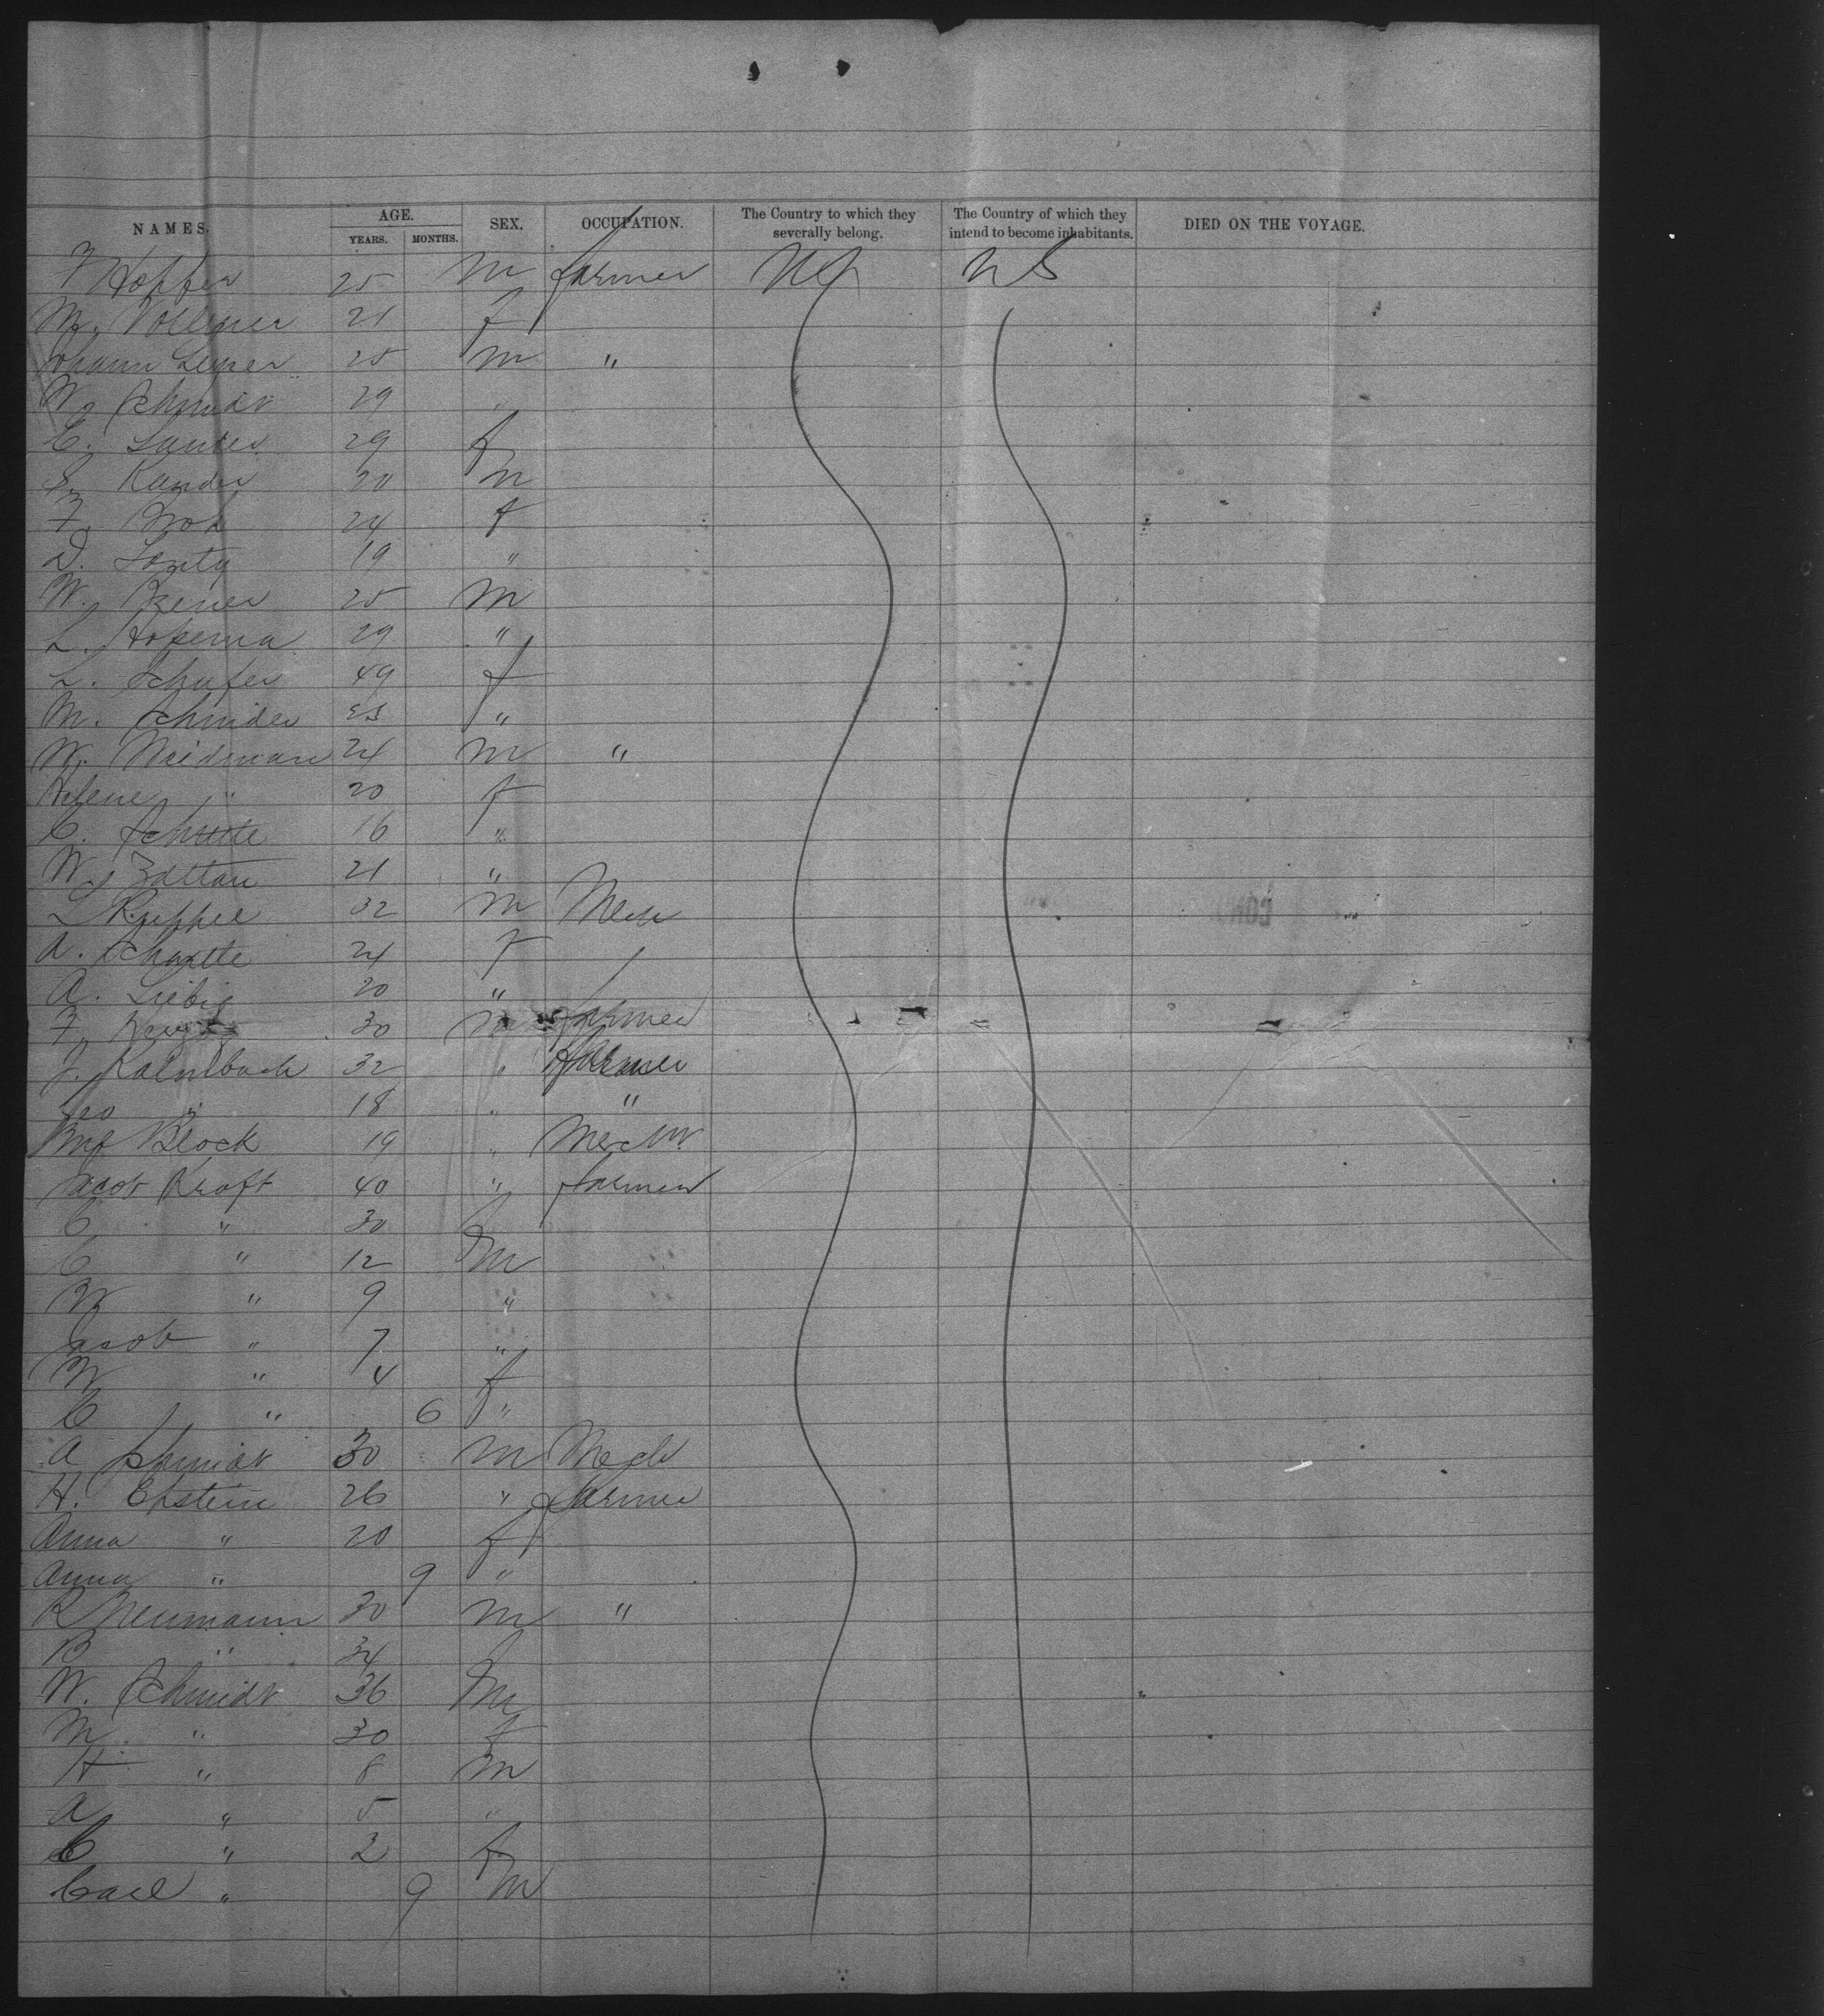 NAMES. AGE. SEX. OCCUPATION. The Country to which they severally belong. The Country of which they intend to become inhabitants. DIED ON THE VOYAGE.
YEARS. MONTHS.
F Hopfer 25 m farmer US
M. Vollmer 21 f
Johann 25 m "
W. Schmidt 29 "
C. 29 f
S. Kander 20 m
F. 24 f
D. 19 "
W. 25 m
L. 29 "
L. Schafer 49 f
M. Schnider "
W. Weidman 24 m "
Helene " 20 f
C. Schutte 16 "
W. 21 "
L Ruppel 32 m
A. Schutte 24 f
A. Liebig 20 "
F. 30 m farmer
J. Kalmbach 32 " farmer
Geo " 18 " "
Block 19 "
Jacob Kraft 40 " farmer
C " 30 f
C " 12 m
W " 9 "
Jacob " 7 "
W " 4 f
C " 6 "
A Schmidt 30 m
H. Epstein 26 " farmer
Anna " 20 f
Anna " 9 "
R Neumann 30 m "
B " 34 f
W. Schmidt 36 m
M " 30 f
H " 8 m
A " 5 "
C " 2 f
Carl " 9 m